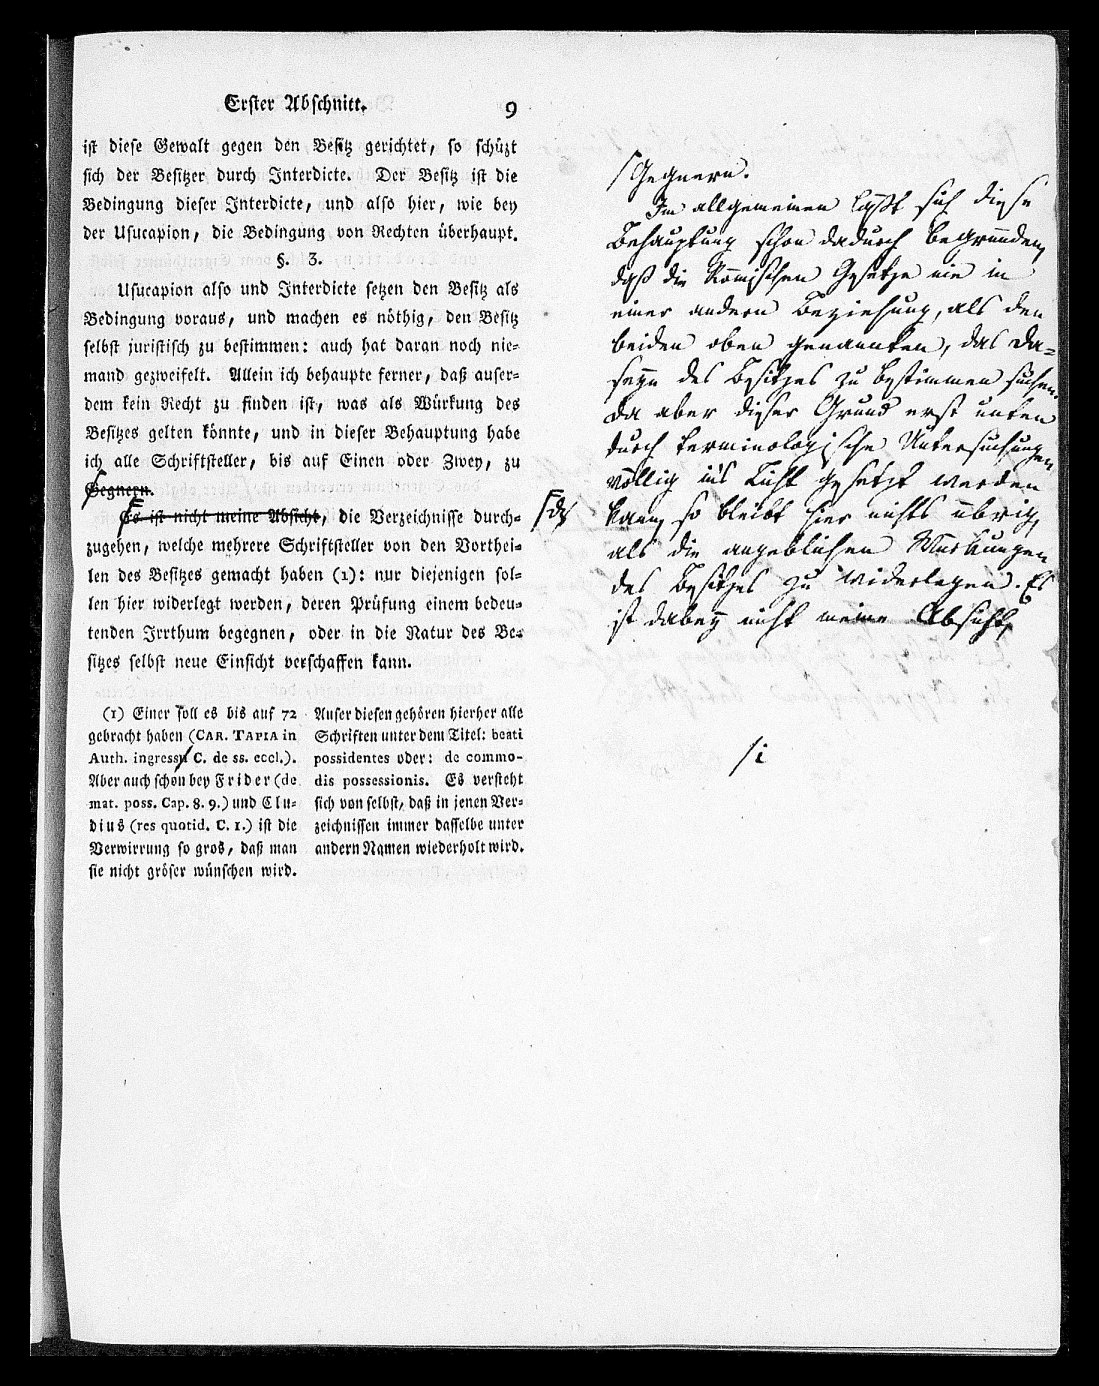 Erster Abschnitt. 9
ist diese Gewalt gegen den Besitz gerichtet, so schüzt
sich der Besitzer durch Interdicte. Der Besitz ist die
Bedingung dieser Interdicte, und also hier, wie bey
der Usucapion, die Bedingung von Rechten überhaupt.
§. 3.
Usucapion also und Interdicte setzen den Besitz als
Bedingung voraus, und machen es nöthig, den Besitz
selbst juristisch zu bestimmen: auch hat daran noch nie-
mand gezweifelt. Allein ich behaupte ferner, daß auser-
dem kein Recht zu finden ist, was als Würkung des
Besitzes gelten könnte, und in dieser Behauptung habe
ich alle Schriftsteller, bis auf Einen oder Zwey, zu
Gegnern.
Es ist nicht meine Absicht, die Verzeichnisse durch-
zugehen, welche mehrere Schriftsteller von den Vorthei-
len des Besitzes gemacht haben (1): nur diejenigen sol-
len hier widerlegt werden, deren Prüfung einem bedeu-
tenden Irrthum begegnen, oder in die Natur des Be-
sitzes selbst neue Einsicht verschaffen kann.
(1) Einer soll es bis auf 72
gebracht haben (CAR. TAPIA in
Auth. ingressu C. de ss. eccl.).
Aber auch schon bey Frider (de
mat. poss. Cap. 8. 9.) und Clu-
dius (res quotid. C. 1.) ist die
Verwirrung so gros, daß man
sie nicht gröser wünschen wird.
Auser diesen gehören hierher alle
Schriften unter dem Titel: beati
possidentes oder: de commo-
dis possessionis. Es versteht
sich von selbst, daß in jenen Ver-
zeichnissen immer dasselbe unter
andern Namen wiederholt wird.
Gegnern.
Im allgemeinen läßt sich diese
Behauptung schon dadurch begründen,
daß die Römischen Gesetze nie in
einer andern Beziehung, als den
beiden oben genannten, das Da-
seyn des Besitzes zu bestimmen suchen.
Da aber dieser Grund erst unten
durch terminologische Untersuchungen
völlig ins Licht gesetzt werden
kann, so bleibt hier nichts übrig,
als die angeblichen Würkungen
des Besitzes zu widerlegen. Es
ist dabey nicht meine Absicht,
i